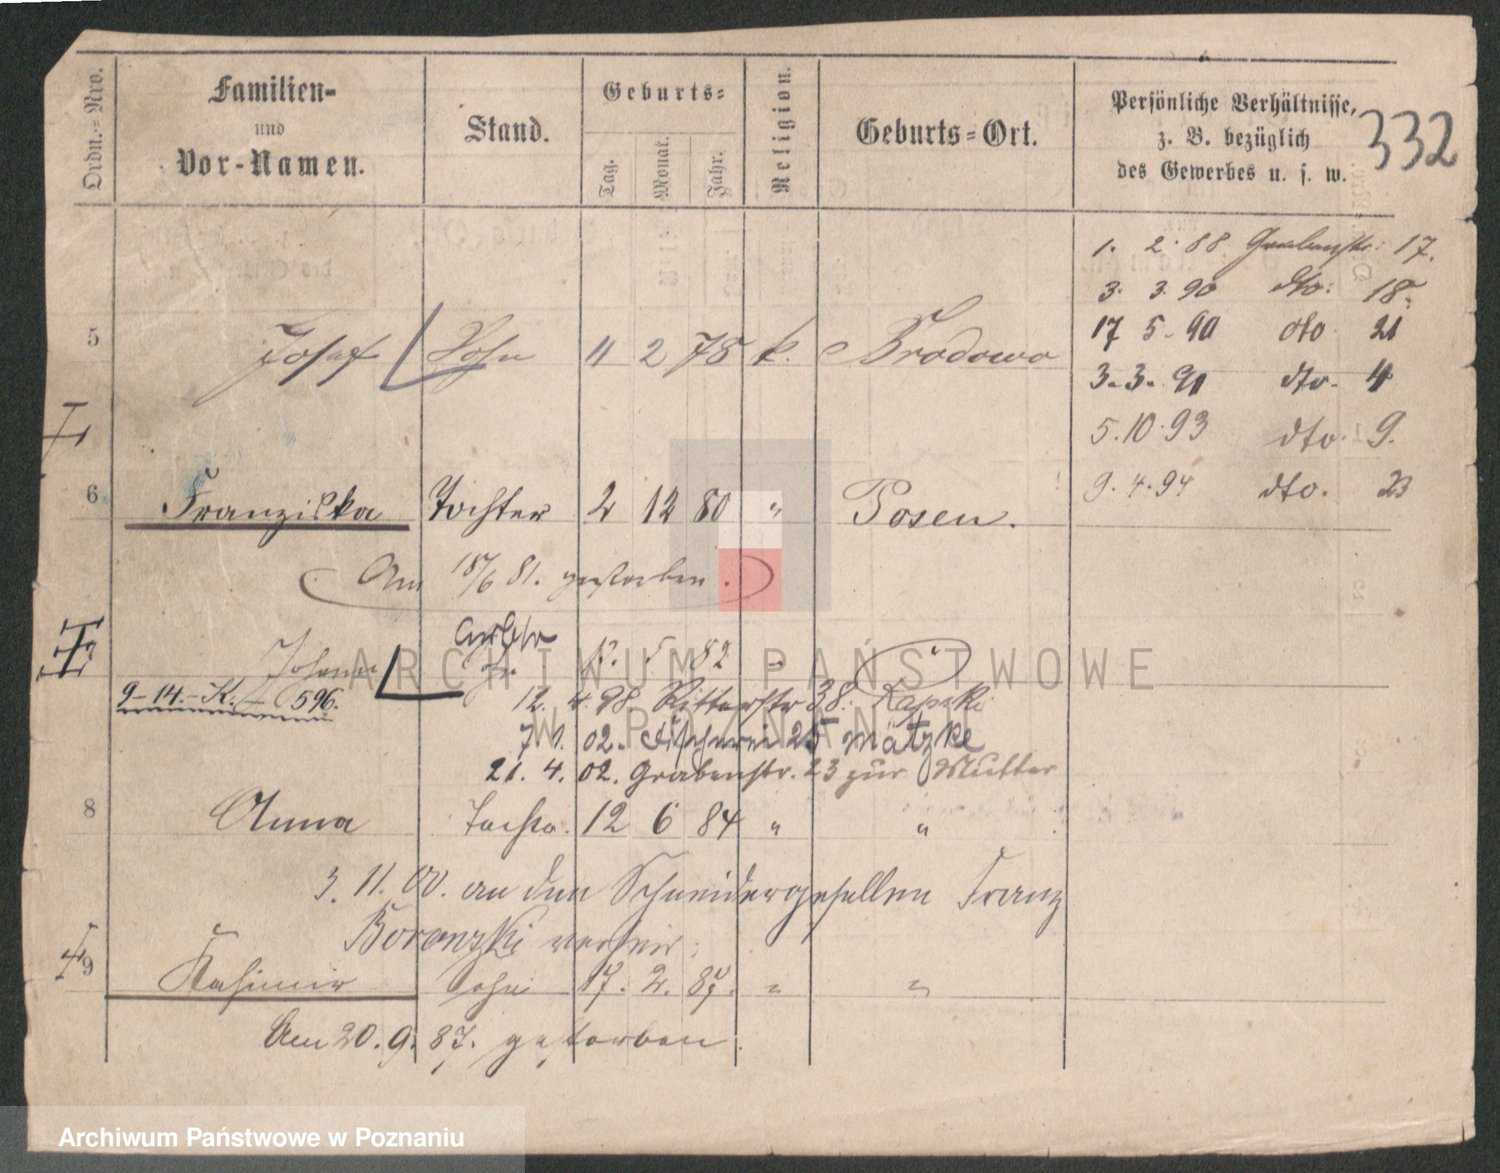 Ordn.-Nro.
Familien-
und
Vor-Namen.
Stand.
Geburts-
Tag.
Monat.
Jahr.
Religion.
Geburts-Ort.
Persönliche Verhältnisse,
z. B. bezüglich
des Gewerbes u. s. w.
332
1. 2. 88 Grabenstr: 17.
3. 3. 90 dto: 18.
17 5. 90 dto 21
3. 3. 91 dto. 4
5. 10. 93 dto. 9.
9. 4. 94 dto. 23
5 Josef Sohn 11 2 78 k. Brodowo
6 Franziska Tochter 2 12 80 " Posen.
Am 18/6 81. gestorben.
Johann 5 82 "
9-14.-K. 596.
12. 4. 98 Ritterstr 38. Kapski
02. Fischerei 25 Matzke
21. 4. 02. Grabenstr. 23 zur Mutter
8 Anna Tochter. 12 6 84 " "
3. 11. 00. an den Schneidergesellen Franz
9 Kasimir Sohn 17. 2. 87. " "
Am 20. 9. 87. gestorben.
ARCHIWUM PAŃSTWOWE
W POZNANIU
Archiwum Państwowe w Poznaniu